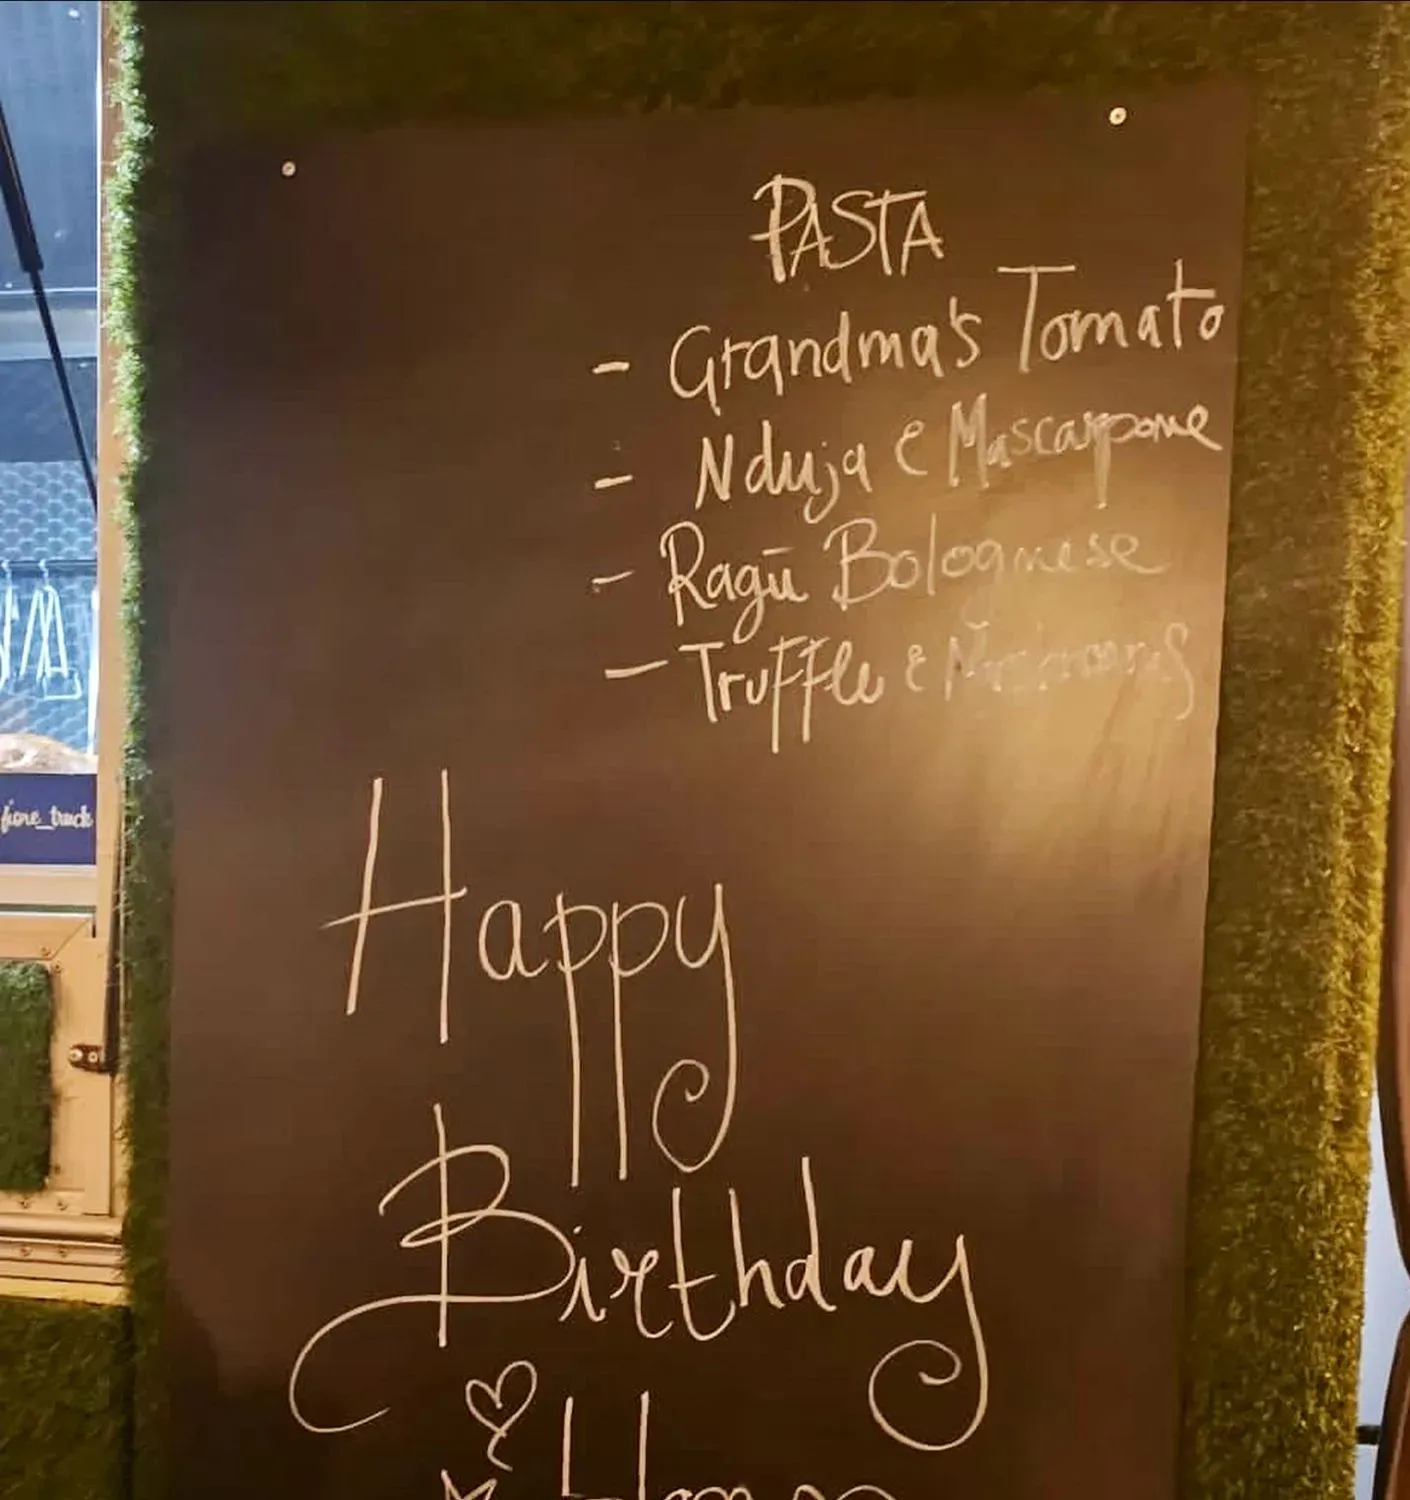 PASTA
- Grandma's Tomato
- Nduja & Mascarpone
- Ragū Bolognese
- Truffle &
fiore_truck
Happy
Birthday